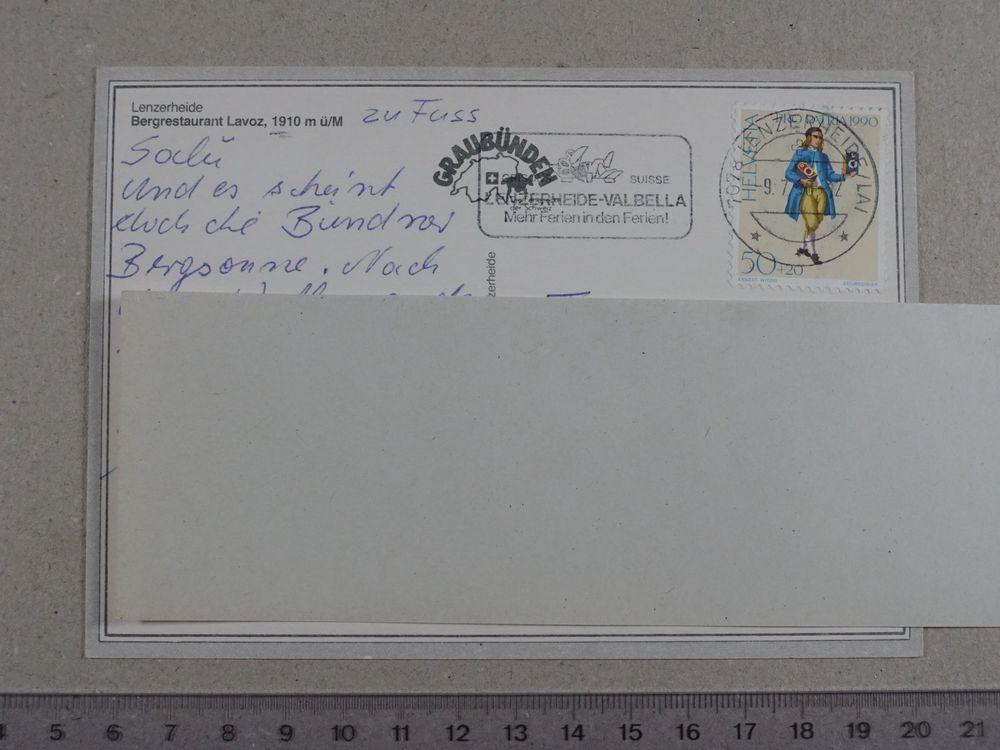 Lenzerheide
Bergrestaurant Lavoz, 1910 m ü/M
zu Fuss
Salü
und es scheint
doch die Bündner
Bergsonne. Nach
GRAUBÜNDEN
der Schweiz
SUISSE
LENZERHEIDE-VALBELLA
Mehr Ferien in den Ferien!
zerheide
7078 LENZERHEIDE/LAI
-9.7
HELVETIA
PRO PATRIA 1990
50+20
4 5 6 7 8 9 10 11 12 13 14 15 16 17 18 19 20 21